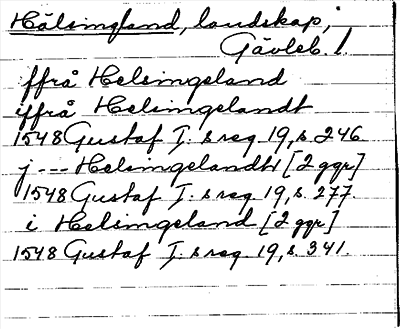 Hälsingland, landskap,
Gävleb. l.
ffrå Helsingeland
iffrå Helsingelandt
1548 Gustaf I:s reg. 19, s. 246.
j --- Helsingelandtt [2 ggr]
1548 Gustaf I:s reg. 19, s. 277.
i Helsingeland [2 ggr]
1548 Gustaf I:s reg. 19, s. 341.